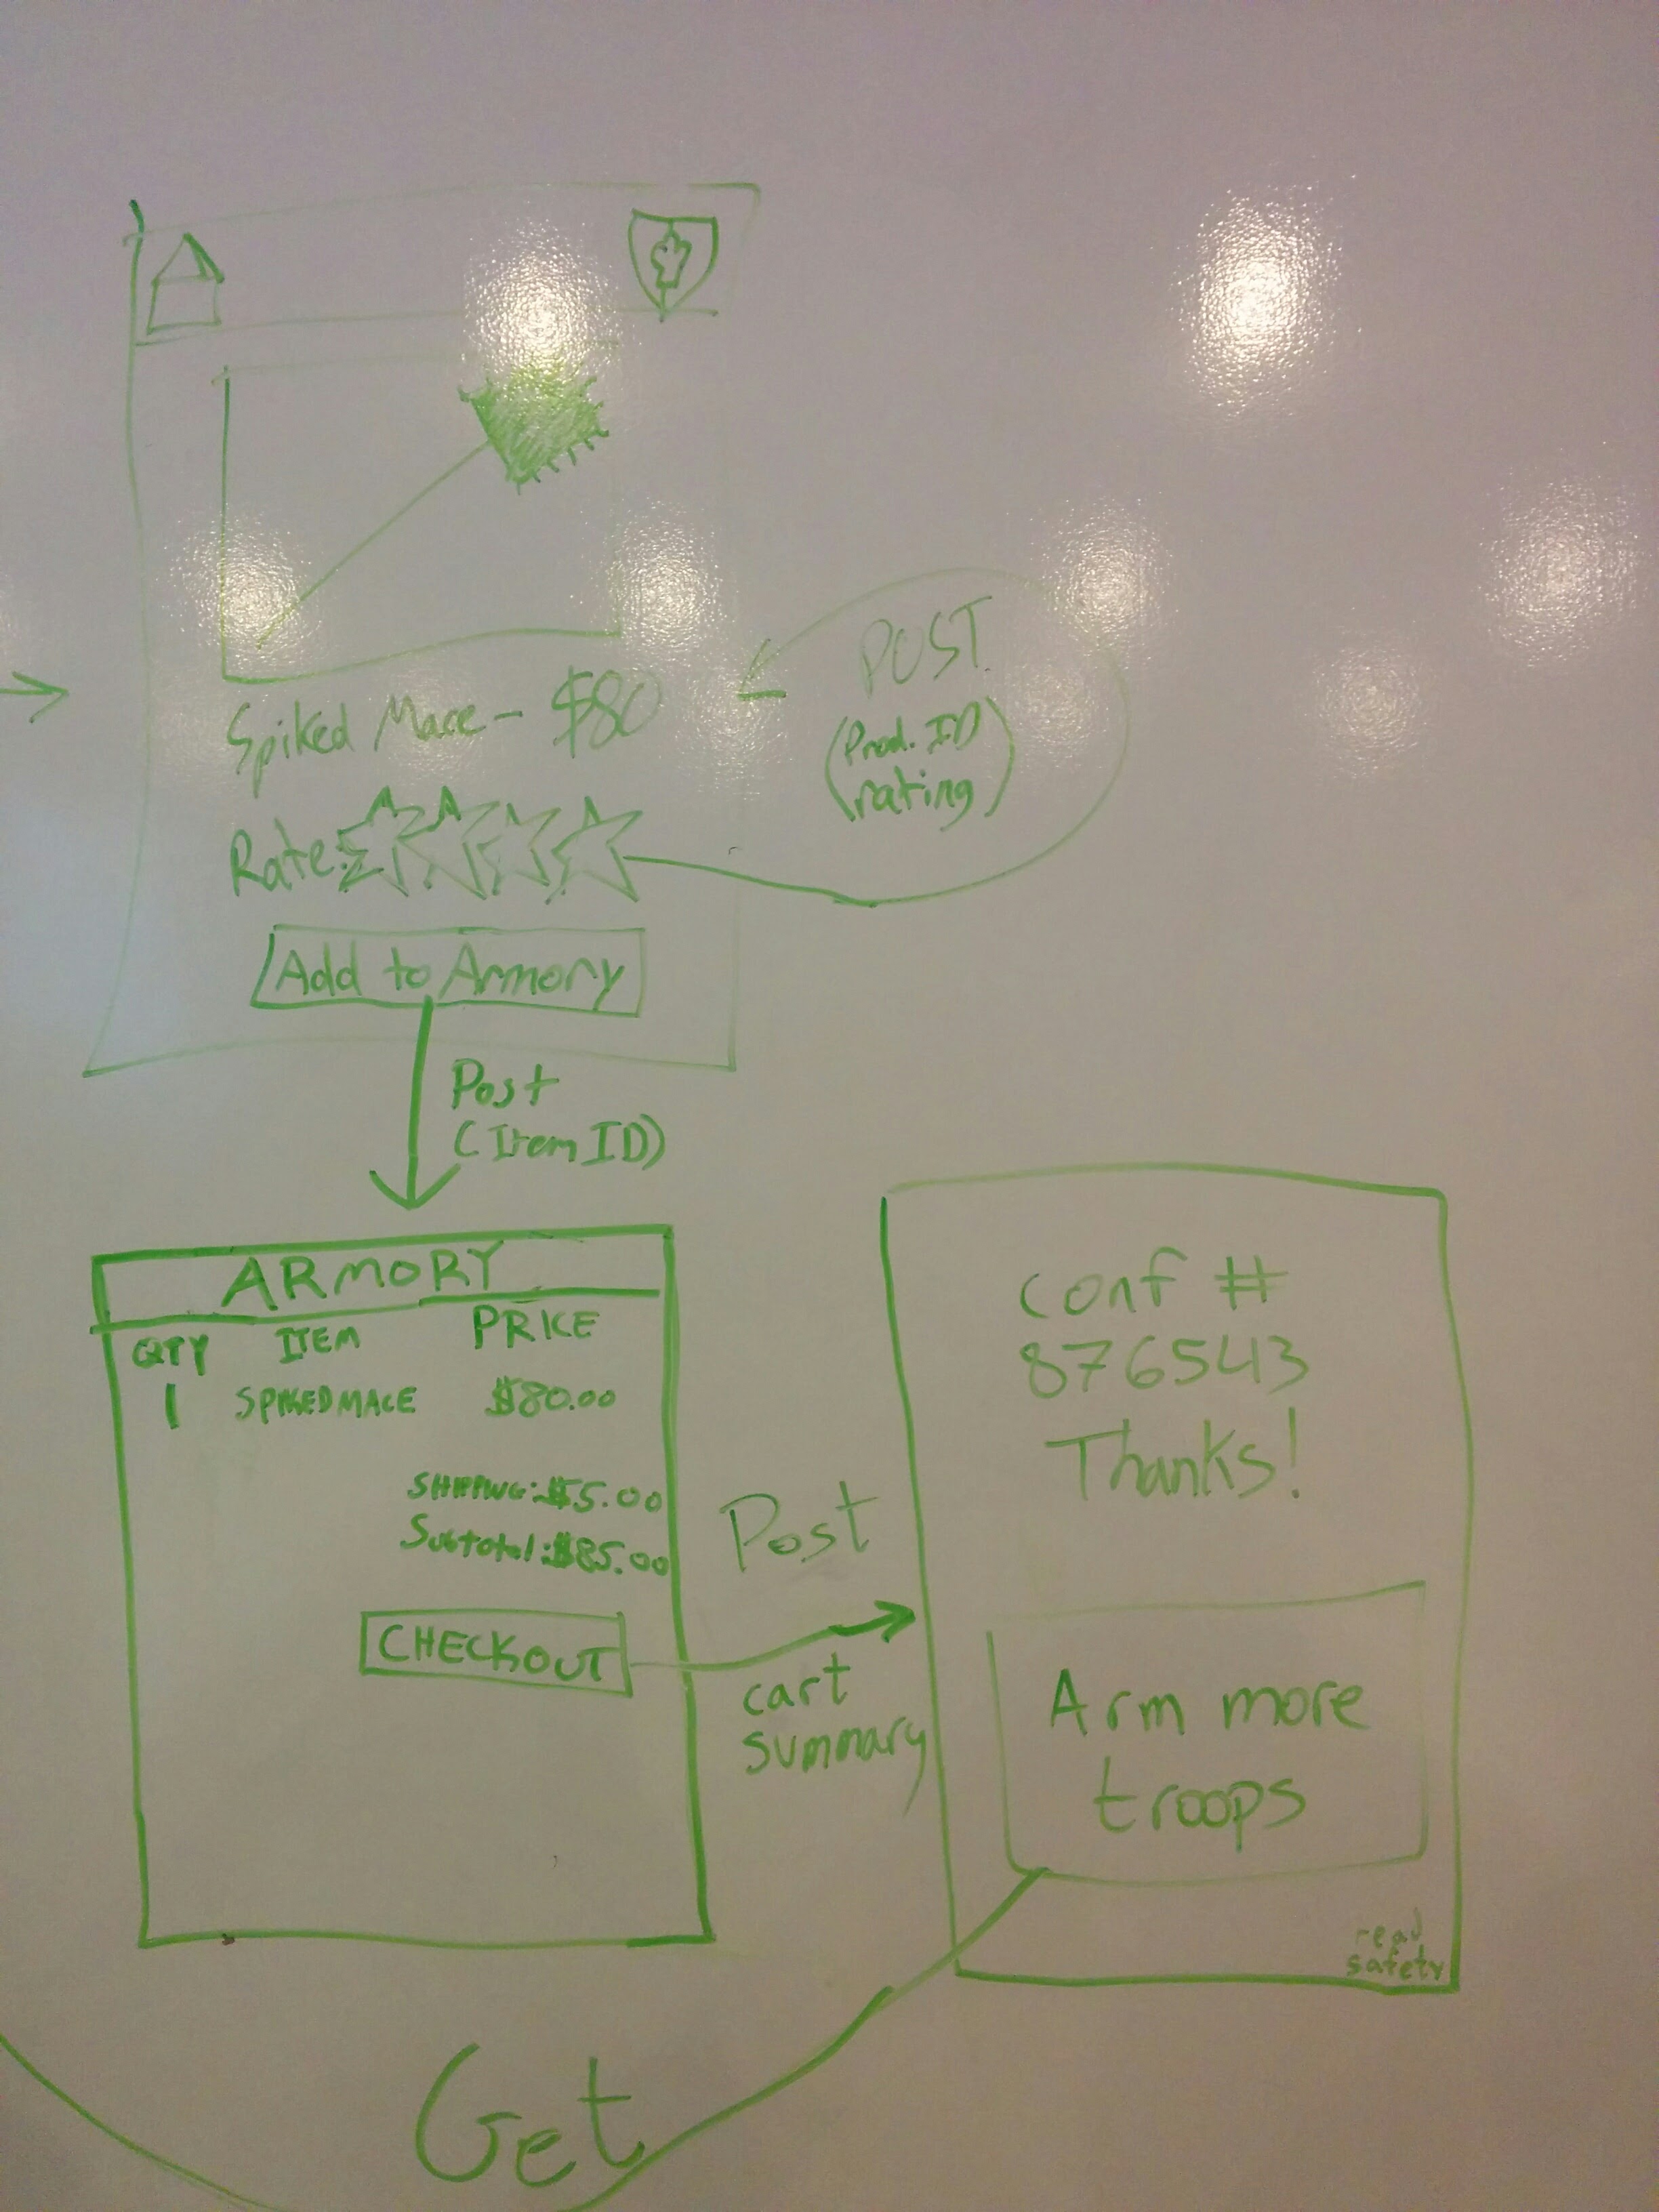 Spiked Mace - $80
Rate:
Add to Armory
POST
(Prod. ID
rating)
Post
(Item ID)
ARMORY
QTY ITEM PRICE
1 SPIKED MACE $80.00
SHIPPING: $5.00
Subtotal: $85.00
CHECKOUT
Post
cart
summary
conf #
876543
Thanks!
Arm more
troops
read
safety
Get